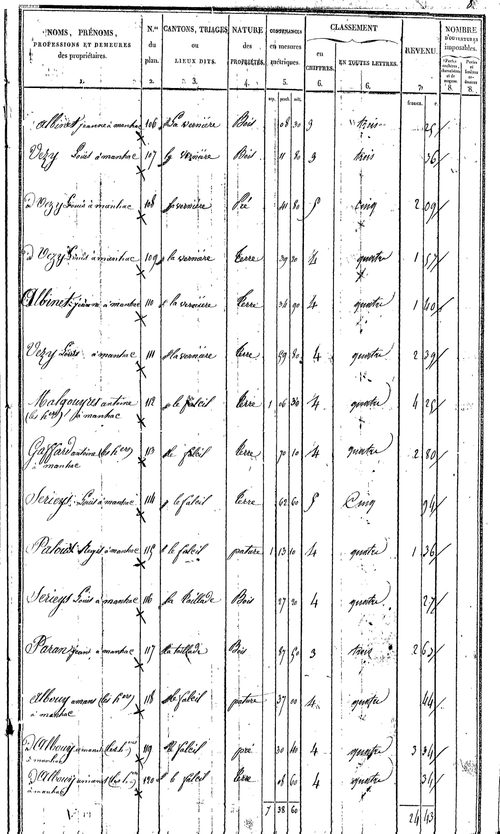 NOMS, PRÉNOMS, PROFESSIONS ET DEMEURES des propriétaires. N.os du plan. CANTONS, TRIAGES ou LIEUX DITS. NATURE des PROPRIÉTÉS. CONTENANCES en mesures métriques. CLASSEMENT en CHIFFRES. EN TOUTES LETTRES. REVENU. NOMBRE D'OUVERTURES imposables.
1. 2. 3. 4. 5. 6. 6. 7. 8. 8.
francs. c.
Albinet jeanne à manhac 106 La vernière Bois 08 30 3 trois 25
Vezy Louis à manhac 107 la vernière Bois 11 80 3 trois 36
d Vezy Louis à manhac 108 la vernière Pré 41 80 5 cinq 2 09
d Vezy Louis à manhac 109 la vernière terre 39 20 4 quatre 1 57
Albinet jeanne à manhac 110 la vernière terre 34 90 4 quatre 1 40
Vezy Louis à manhac 111 la vernière terre 59 80 4 quatre 2 39
Malgouyres antoine 112 le faleil terre 1 06 30 4 quatre 4 25
(les hers) à manhac
Gaffard antoine (les hers) 113 le faleil terre 70 10 4 quatre 2 80
à manhac
Serieys Louis à manhac 114 le faleil terre 62 60 5 Cinq 94
à manhac 115 le faleil pature 1 13 10 4 quatre 1 36
Serieys Louis à manhac 116 la taillade Bois 27 20 4 quatre 27
Paran jean à manhac 117 la taillade Bois 87 50 3 trois 2 63
Albouy amans (les hers) 118 le faleil pature 37 00 4 quatre 44
à manhac
d Albouy amans (les hers) 119 le faleil pré 30 40 4 quatre 3 34
à manhac
d Albouy amans (les hers) 120 le faleil terre 08 60 4 quatre 34
à manhac
7 38 60 24 43